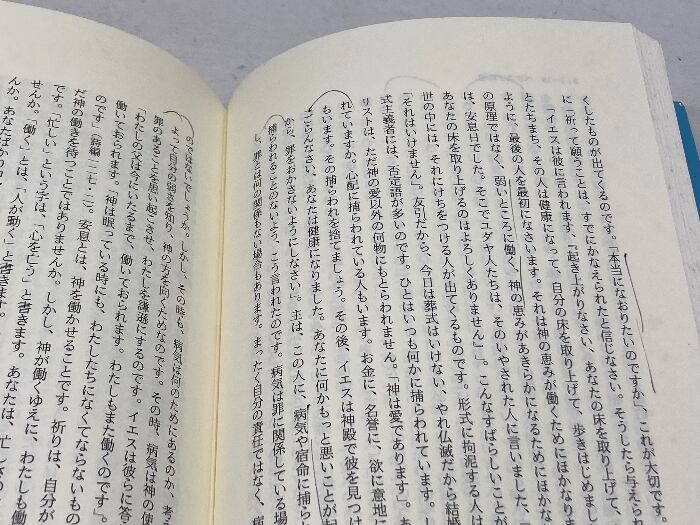 くしたものが出てくるのです。「本当になおりたいのですか」、これが大切です。
に「祈って願うことは、すでにかなえられたと信じなさい。そうしたら与えられ
「イエスは彼に言われます、『起き上がりなさい、あなたの床を取り上げて、歩きはじめまし
とたちまち、その人は健康になって、自分の床を取り上げて、
ように、最後の人を最初になさいます。それは神の恵みが働くためにほかなり
の原理ではなく、弱いところに働く、神の恵みがあきらかになるためにほかな
は、安息日でした。そこでユダヤ人たちは、そのいやされた人に言いました、
あなたの床を取り上げるのはよろしくありません』」。こんなすばらしいことが
世の中には、それにけちをつける人が出てくるものです。形式に拘泥する人は
「それはいけません」。友引だから、今日は葬式はいけない、やれ仏滅だから結婚
式主義者には、否定語が多いのです。ひとはいつも何かに捕らわれています。
リストは、ただ神の愛以外の何物にもとらわれません。「神は愛であります」。あ
れていますか。心配に捕らわれている人もいます。お金に、名誉に、欲に意地に
もいます。その捕らわれを捨てましょう。その後、イエスは神殿で彼を見つけ
「ごらんなさい、あなたは健康になりました。あなたに何かもっと悪いことが
から、罪をおかさないようにしなさい」。主は、この人に、病気や宿命に捕ら
捕らわれることのないよう、こう言われたのです。病気は罪に関係している場
し、罪とは何の関係もない場合もあります。まったく自分の責任ではなく、病
のではないでしょうか。しかし、その時も、病気は何のためにあるのか、考
よって自分の弱さを知り、神の方を向くためなのです。その時、病気は神の使
罪のあることを思い起こさせ、わたしを謙遜にするのです。イエスは彼らに答
「わたしの父は今にいたるまで、働いておられます。わたしもまた働くのです」。
働いておられます。神は眠っている時にも、わたしたちになくてならないもの
のです」（詩編一二七・二）。安息とは、神を働かせることです。祈りは、自分が
だ神の働きを待つことではありませんか。しかし、神が働くゆえに、わたしも働
です。「忙しい」という字は、「心を亡う」と書きます。あなたは、忙し
せんか。働く」とは、「人が動く」と書きます。
んか。あなたばかり